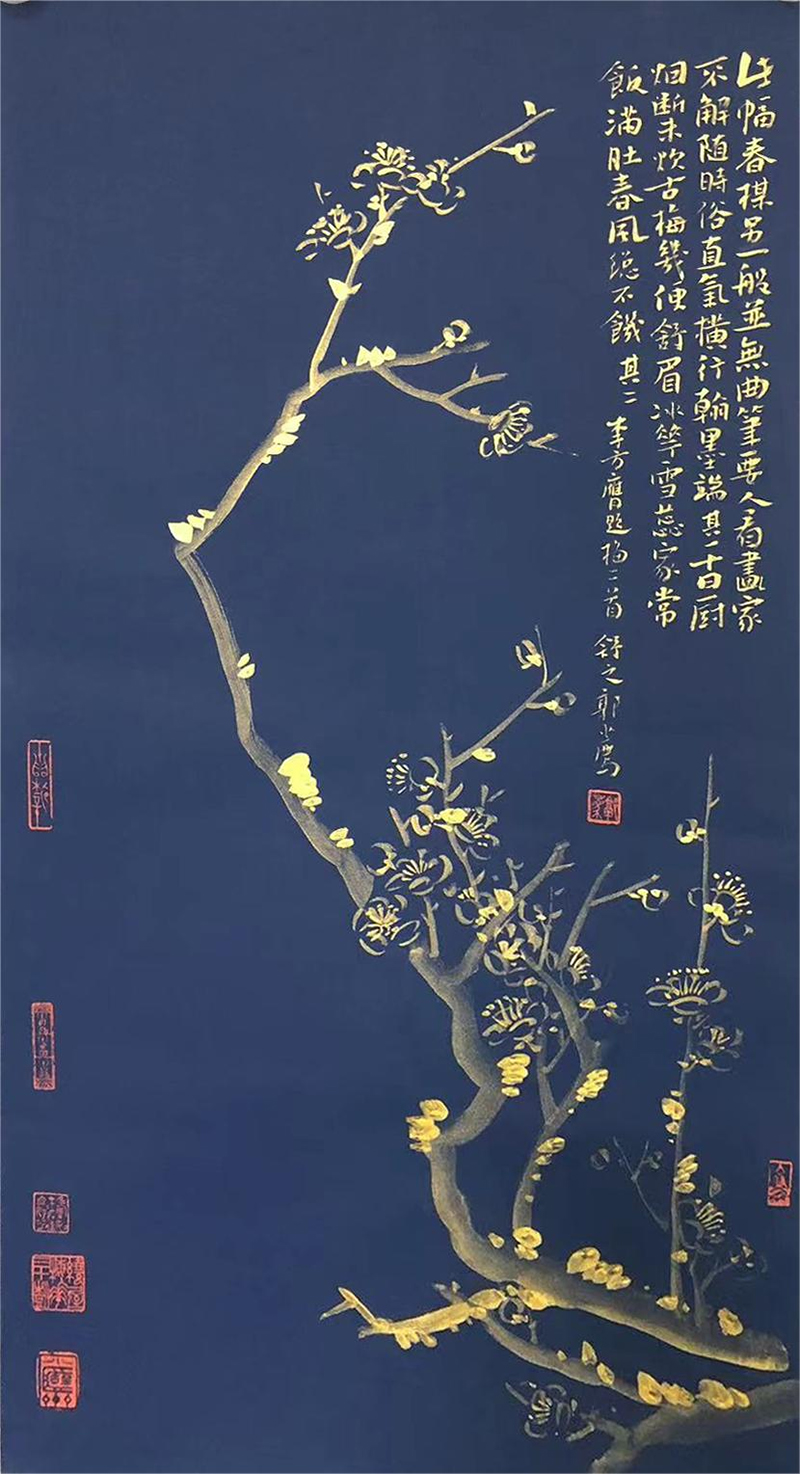 此幅春楳另一般並無曲筆要人看畫家
不解随時俗直氣横行翰墨端其一十日厨
烟断未炊古梅幾便舒眉冰華雪蕊家常
飯满肚春風總不饑其二 李方膺題梅二首 舒之郭